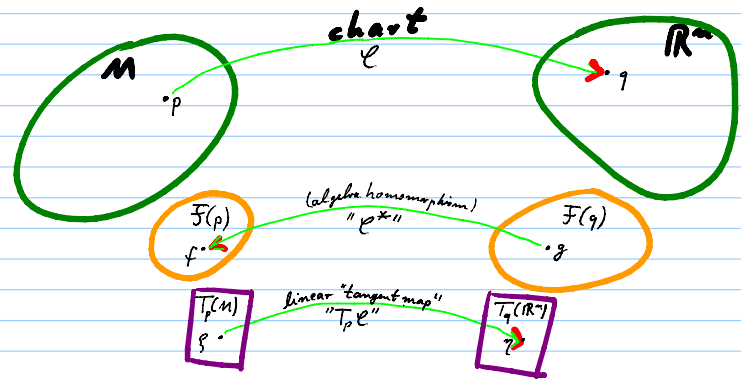 chart
M
ℝⁿ
φ
p
q
(algebra homomorphism)
F(p)
"φ*"
F(q)
f
g
linear "tangent map"
T_p(M)
"T_pφ"
T_q(ℝⁿ)
ξ
η